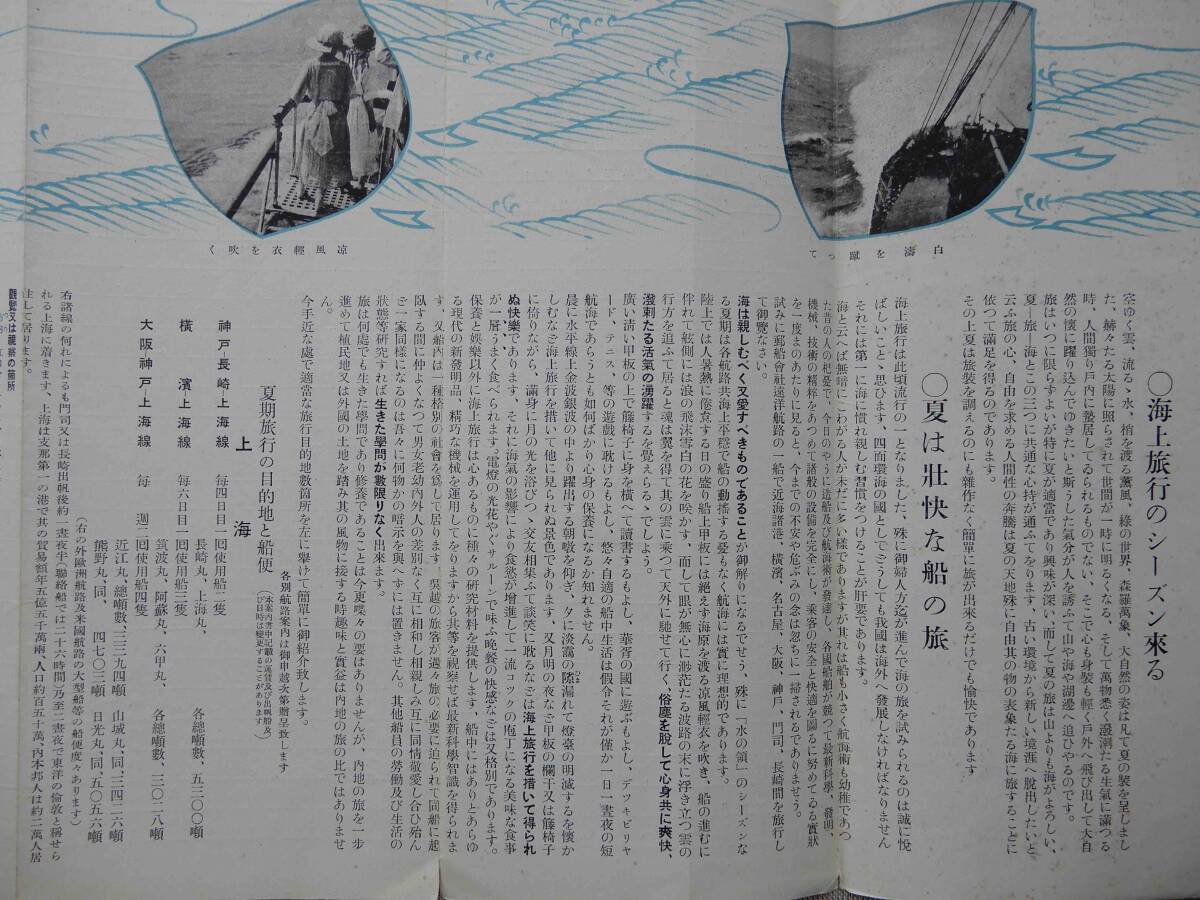 白濤を蹴つて
凉風輕衣を吹く
〇海上旅行のシーズン來る
空ゆく雲、流るゝ水、梢を渡る薫風、綠の世界、森羅萬象、大自然の姿は凡て夏の裝を呈しまし
た、赫々たる太陽に照らされて世間が一時に明るくなる、そして萬物悉く潑溂たる生氣に滿つる
時、人間獨り戸內に蟄居してゐられるものでない、そこで心も身裝も輕く戸外へ飛び出して大自
然の懷に躍り込んでゆきたいと斯うした氣分が人を誘ふて山や海や湖邊へ追ひやるのです。
夏―旅―海とこの三つに共通な心持が通ふてをります、古い環境から新しい境涯へ脫出したいと
云ふ旅の心、自由を求める人間性の奔騰は夏の天地殊に自由其の物の表象たる海に旅することに
依つて滿足を得るのであります。
旅はいつに限らずよいが特に夏が適當であり興味が深い、而して夏の旅は山よりも海がよろしい、
その上夏は旅裝を調えるのにも雜作なく簡單に旅が出來るだけでも愉快であります
〇夏は壯快な船の旅
海上旅行は此頃流行の一となりました、殊に御婦人方迄が進んで海の旅を試みられるのは誠に悅
ばしいことゝ思ひます、四面環海の國としてどうしても我國は海外へ發展しなければなりません
それには第一に海に慣れ親しむ習慣をつけることが肝要であります。
海と云へば無暗にこわがる人が未だに多い樣でありますが其れは船も小さく航海術も幼稚であつ
た昔の人の杞憂で、今日のやうに造船及び航海術が發達し、各國船舶が競つて最新科學、發明、
機械、技術の精粹をあつめて諸般の設備を完全にし、乘客の安全と快適を圖るに努めてゐる實狀
を一度まのあたりに見ると、今までの不安や危ぶみの念は忽ちに一掃されるでありませう。
試みに郵船會社遠洋航路の一船で近海諸港、橫濱、名古屋、大阪、神戸、門司、長崎間を旅行し
て御覽なさい。
海は親しむべく又愛すべきものであることが御解りになるでせう、殊に「水の領」のシーズンな
る夏期は各航路共海上平穩で船の動搖する憂もなく航海には實に理想的であります。
陸上では人暑熱に倦怠する日の盛り船上甲板には絕えず海原を渡る凉風輕衣を吹き、船の進むに
伴れて舷側には浪の飛沫雪白の花を咲かす、而して眼が無心に渺茫たる波路の末に浮き立つ雲の
行方を追ふて居ると魂は翼を得て其の雲に乘つて天外に馳せて行く、俗塵を脫して心身共に爽快、
潑刺たる活氣の湧躍するを覺えらるゝでしよう。
廣い淸い甲板の上で籐椅子に身を橫へて讀書するもよし、華胥の國に遊ぶもよし、デツキビリヤ
ード、テニス、等の遊戲に耽けるもよし、悠々自適の船中生活は假令それが僅か一日一晝夜の短
航海であらうとも如何ばかり心身の保養になるか知れません。
晨に水平線上金波銀波の中より躍出する朝暾を仰ぎ、夕に淡靄の隙漏れて燈臺の明滅するを懷か
しむなど海上旅行を措いて他に見られぬ景色であります、又月明の夜など甲板の欄干又は籐椅子
に倚りながら、滿身に月の光を浴びつゝ交友相集ふて談笑に耽るなどは海上旅行を措いて得られ
ぬ快樂であります、それに海氣の影響により食慾が增進して一流コツクの庖丁になる美味な食事
が一層うまく食べられます『電燈の光花やぐサルーンで味ふ晚餐の快感などは又格別であります。
保養と娛樂以外に海上旅行は心あるものに種々の硏究材料を提供します、船中にはありとあらゆ
る現代の新發明品、精巧な機械を運用してをりますから其等を視察せば最新科學智識を得られま
す、又船內は一種格別の社會を爲して居ります、吳越の旅客が邂々旅の必要に迫られて同船に起
臥する間に仲よくなつて男女老幼內外人の差別なく互に相和し相親しみ互に同情敬愛し合ひ殆ん
ど一家同樣になるのは吾々に何物かの暗示を與へずには置きません。其他船員の勞働及び生活の
狀態等硏究すれば生きた學問が數限りなく出來ます。
旅は何處でも生きた學問であり修養であることは今更喋々の要はありませんが、內地の旅を一步
進めて植民地又は外國の土地を踏み其の風物に接する時趣味と實益は內地の旅の比ではありませ
ん。
今手近な處で適當な旅行目的地數箇所を左に擧げて簡單に御紹介致します。
各別航路案內は御申越次第贈呈致します
夏期旅行の目的地と船便
(本案內書中記載の運賃及び出帆港及
び日時は變更することがあります)
上海
神戸長崎―上海線 每四日目一回使用船二隻
長崎丸、上海丸、 各總噸數、五三〇〇噸
橫濱―上海線 每六日目一回使用船三隻
筑波丸、阿蘇丸、六甲丸、 各總噸數、三〇二八噸
大阪神戸―上海線 每週二回使用船四隻
近江丸、總噸數、三三九四噸 山城丸、同、三四二六噸
熊野丸、同、四七〇三噸 日光丸、同、五〇五六噸
(右の外歐洲航路及米國航路の大型船等の船便度々あります)
右諸線の何れによるも門司又は長崎出帆後約一晝夜半(聯絡船では二十六時間)乃至二晝夜で東洋の倫敦と稱せら
れる上海に着きます、上海は支那第一の港で其の貿易額年五億五千萬兩、人口約百五十萬、內本邦人は約二萬人居
住して居ります。
觀覽又は視察の箇所